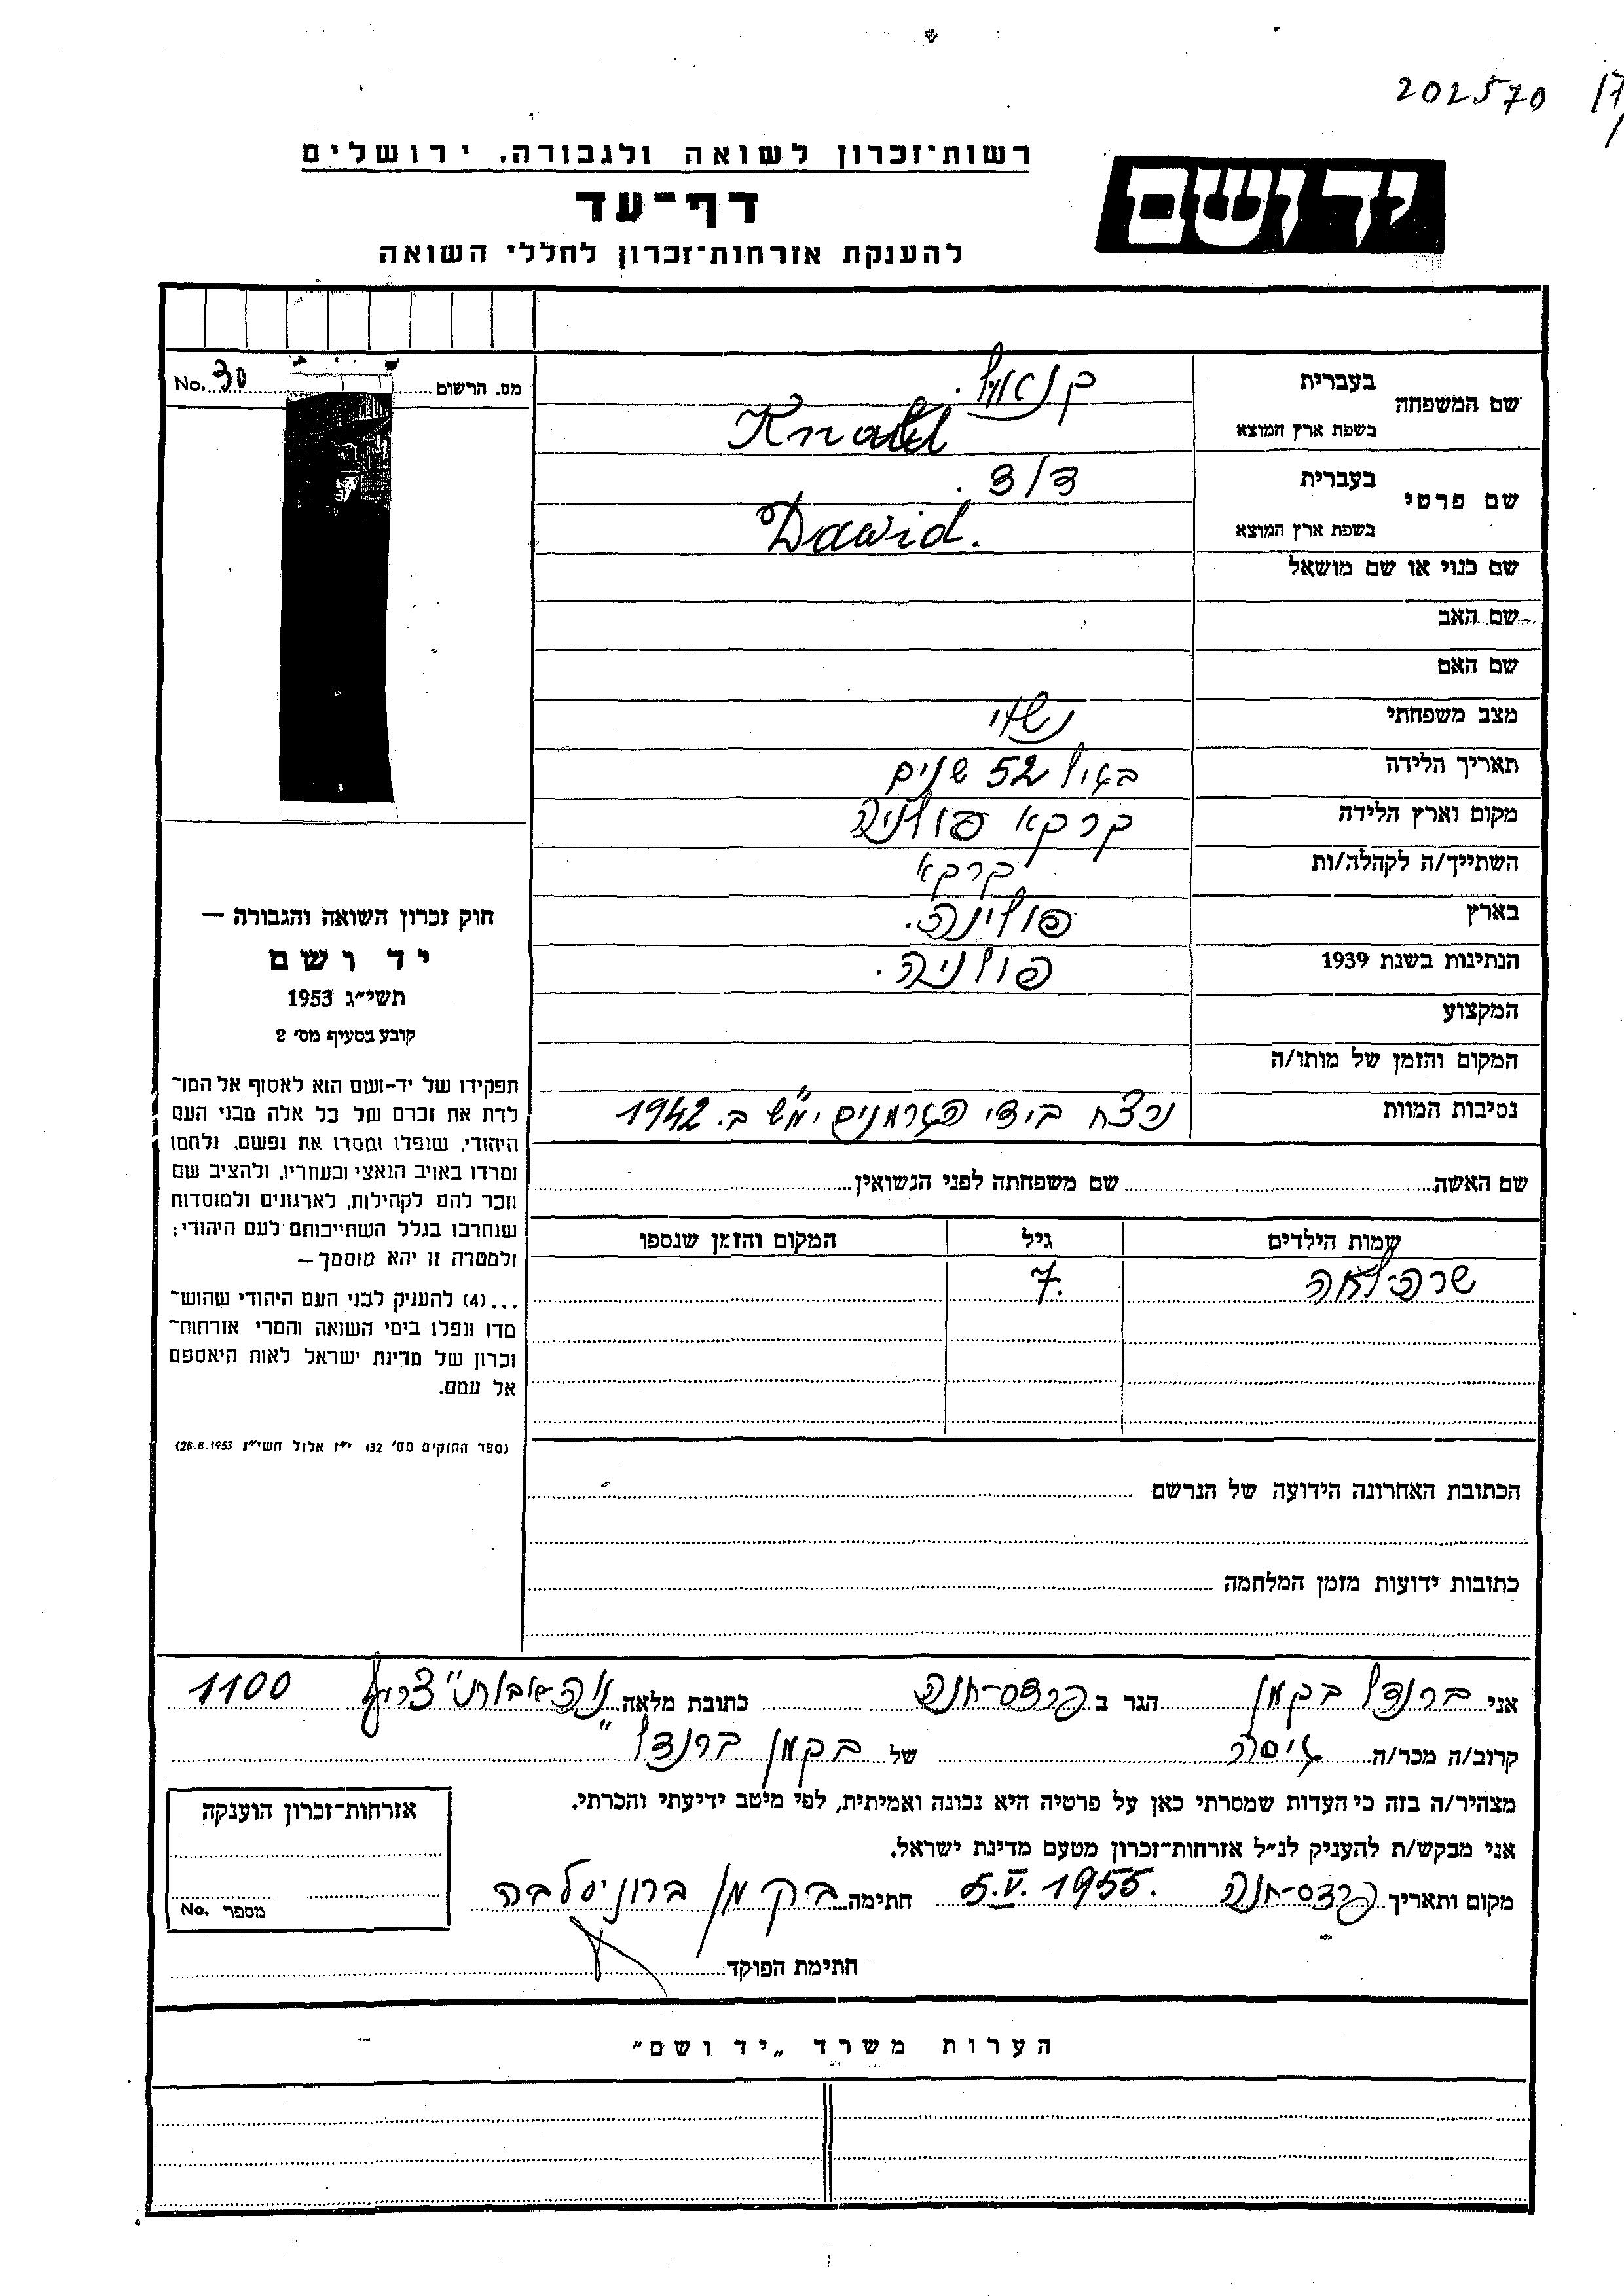 202570
רשות־זכרון לשואה ולגבורה, ירושלים
יד ושם
דף־עד
להענקת אזרחות־זכרון לחללי השואה
מס. הרשום 30 No.
שם המשפחה
בעברית
בשפת ארץ המוצא
שם פרטי
בעברית דוד.
בשפת ארץ המוצא Dawid.
שם כנוי או שם מושאל
שם האב
שם האם
מצב משפחתי נשוי
תאריך הלידה בגיל 52 שנים
מקום וארץ הלידה קרקא פולניה
השתייך/ה לקהלה/ות קרקא
בארץ פולניה.
הנתינות בשנת 1939 פולניה.
המקצוע
המקום והזמן של מותו/ה
נסיבות המוות נרצח בידי הגרמנים ימ"ש ב. 1942
שם האשה שם משפחתה לפני הנשואין
שמות הילדים גיל המקום והזמן שנספו
שרה־לאה 7.
הכתובת האחרונה הידועה של הנרשם
כתובות ידועות מזמן המלחמה
חוק זכרון השואה והגבורה —
יד ושם
תשי״ג 1953
קובע בסעיף מס׳ 2
תפקידו של יד-ושם הוא לאסוף אל המו־
לדת את זכרם של כל אלה מבני העם
היהודי, שנפלו ומסרו את נפשם, נלחמו
ומרדו באויב הנאצי ובעוזריו, ולהציב שם
וזכר להם לקהילות, לארגונים ולמוסדות
שנחרבו בגלל השתייכותם לעם היהודי;
ולמטרה זו יהא מוסמך —
...(4) להענק לבני העם היהודי שהוש־
מדו ונפלו בימי השואה והמרי אזרחות־
זכרון של מדינת ישראל לאות היאספם
אל עמם.
(ספר החוקים מס׳ 132, י״ז אלול תשי״ג 28.8.1953)
אני ברנדל בקמן הגר ב פרדס-חנה כתובת מלאה 1100
קרוב/ה מכר/ה גיסה של בקמן ברנדל
מצהיר/ה בזה כי העדות שמסרתי כאן על פרטיה היא נכונה ואמיתית, לפי מיטב ידיעתי והכרתי.
אני מבקש/ת להעניק לנ״ל אזרחות־זכרון מטעם מדינת ישראל.
מקום ותאריך פרדס-חנה 5.V.1955. חתימה בקמן ברוניסלבה
חתימת הפוקד
אזרחות־זכרון הוענקה
מספר No.
הערות משרד „יד ושם״